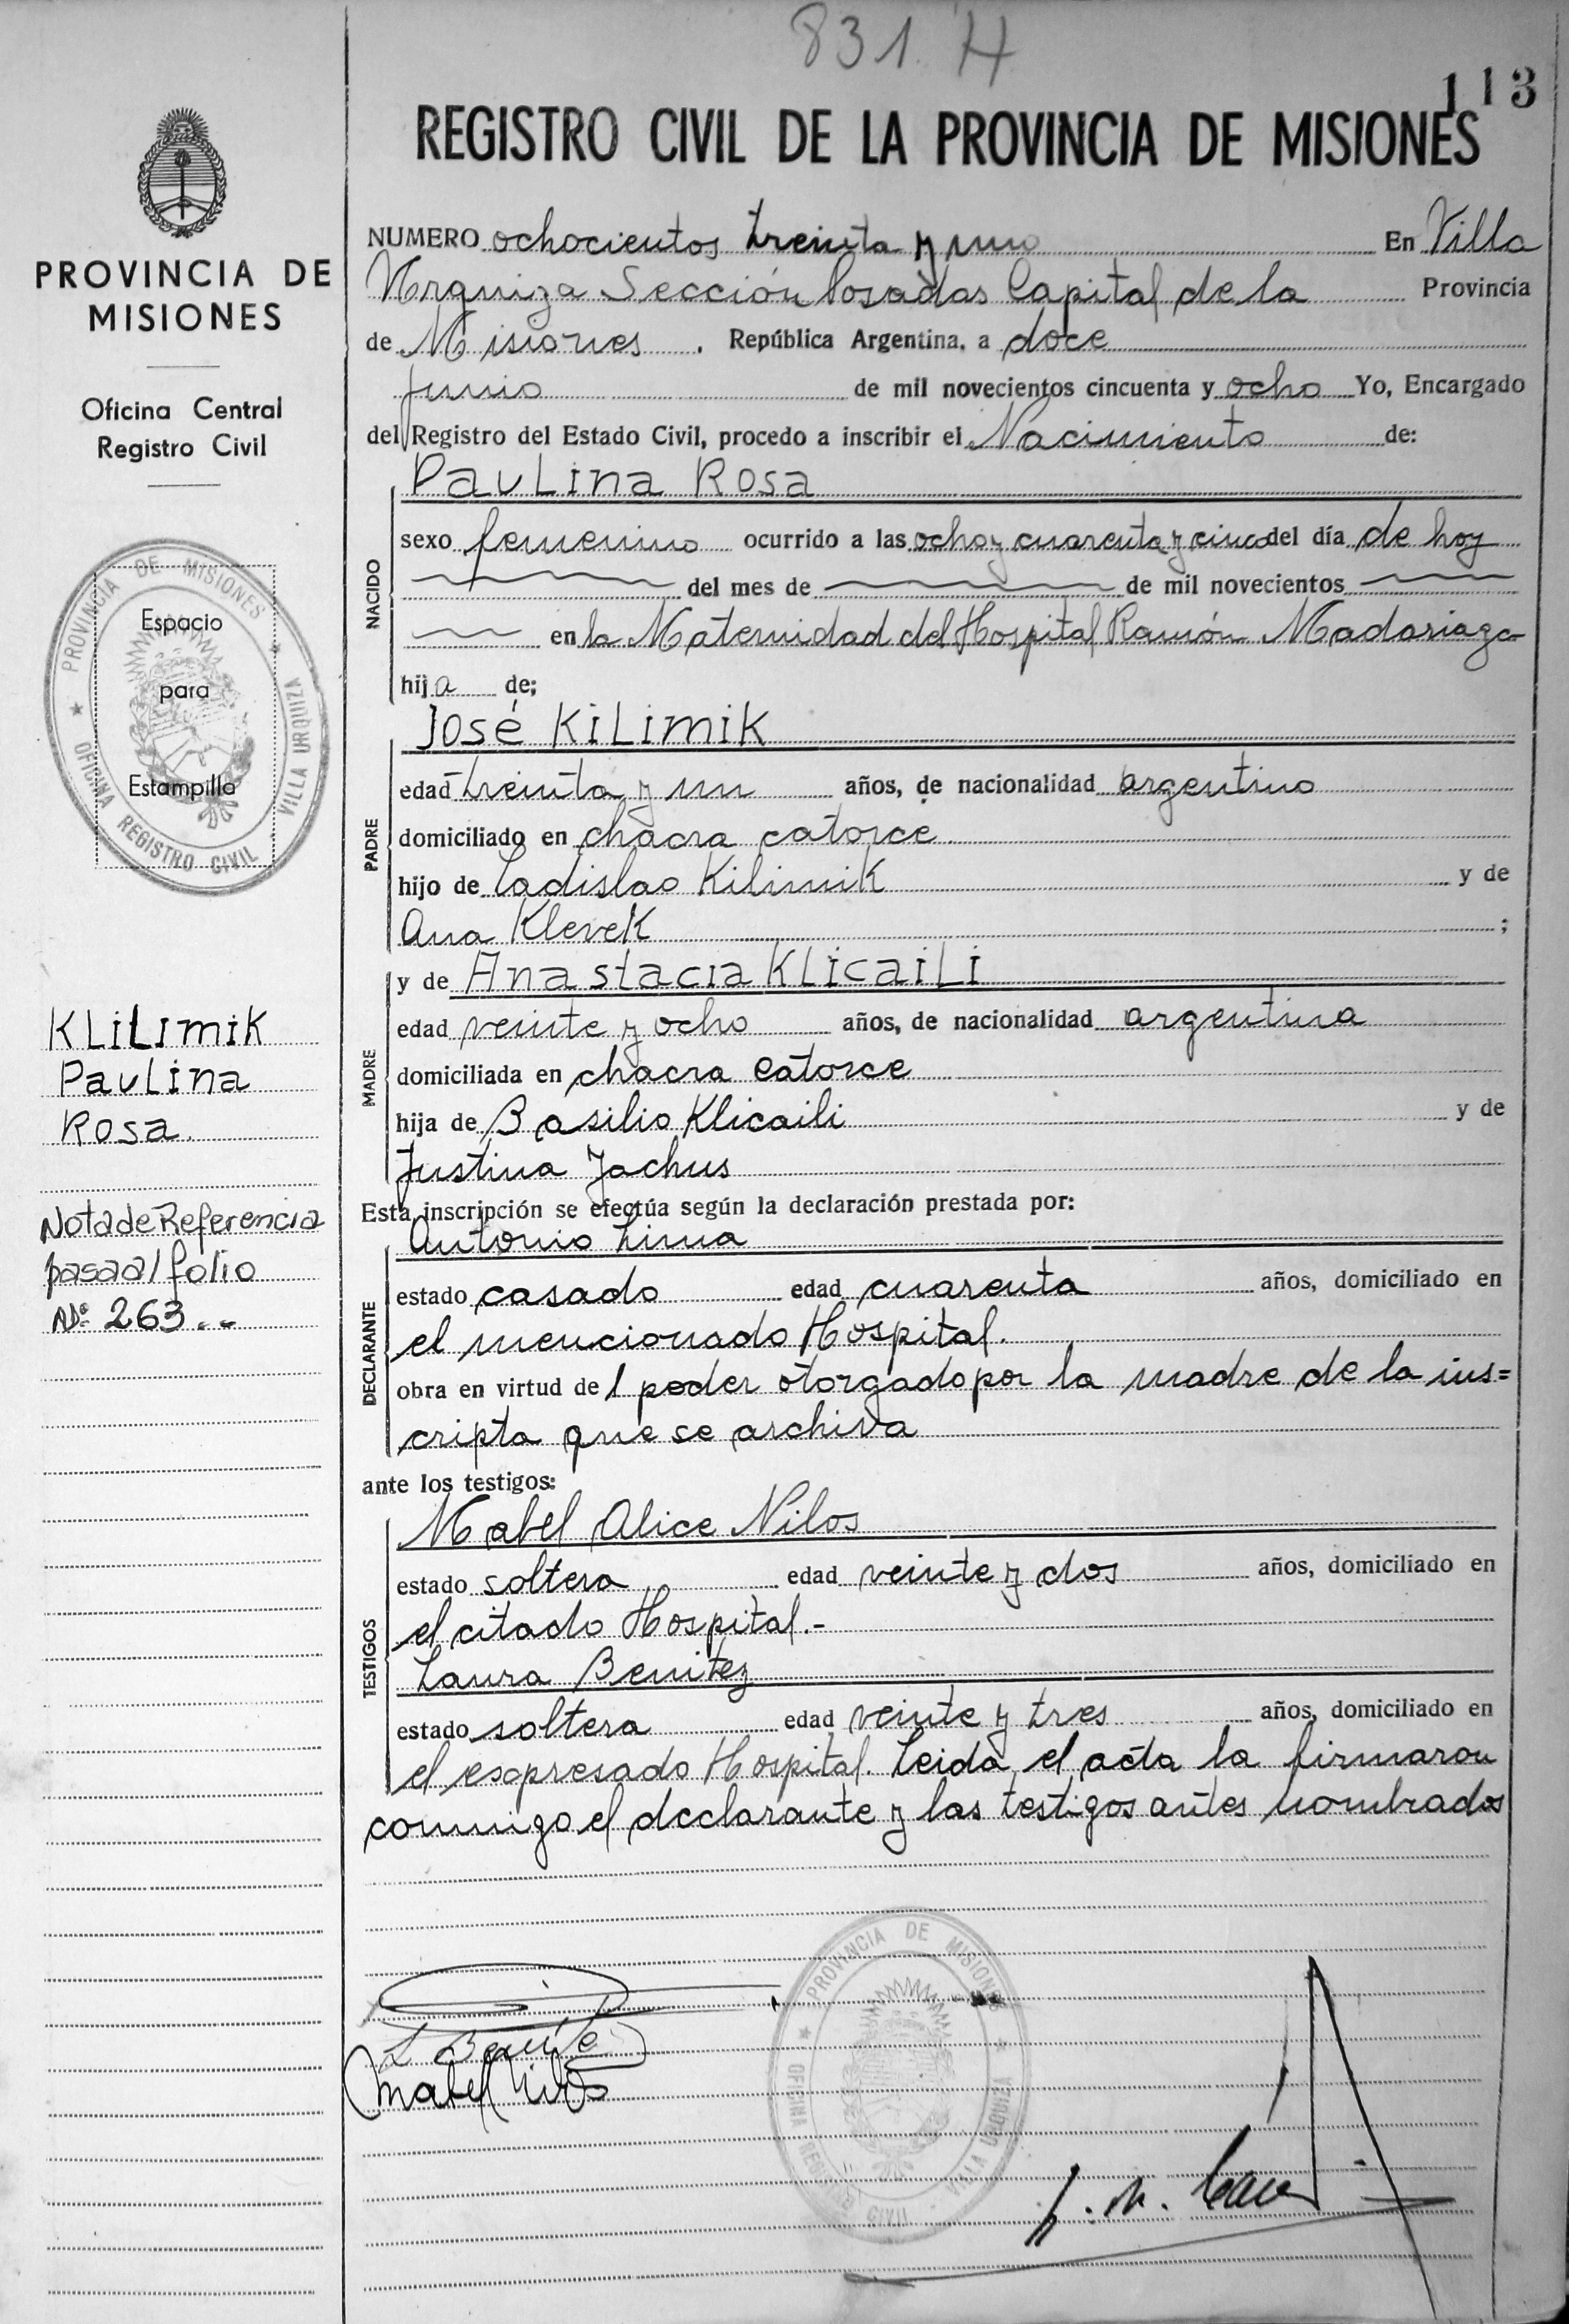 831. H
113
REGISTRO CIVIL DE LA PROVINCIA DE MISIONES
PROVINCIA DE
MISIONES
Oficina Central
Registro Civil
PROVINCIA DE MISIONES
OFICINA REGISTRO CIVIL VILLA URQUIZA
Espacio
para
Estampilla
KLILIMIK
PauLina
Rosa.
Nota de Referencia
pasa al folio
Nº 263..
NUMERO ochocientos treinta y uno En Villa
Urquiza Sección Posadas Capital de la Provincia
de Misiones, República Argentina, a doce
Junio de mil novecientos cincuenta y ocho Yo, Encargado
del Registro del Estado Civil, procedo a inscribir el Nacimiento de:
NACIDO
PauLina Rosa
sexo femenino ocurrido a las ocho y cuarenta y cinco del día de hoy
del mes de de mil novecientos
en la Maternidad del Hospital Ramón Madariaga
hija de;
PADRE
José KiLimiK
edad treinta y un años, de nacionalidad argentino
domiciliado en chacra catorce.
hijo de Ladislao Kilimik y de
Ana Klevek ;
MADRE
y de Anastacia KLicaiLi
edad veinte y ocho años, de nacionalidad argentina
domiciliada en chacra catorce
hija de Basilio Klicaili y de
Justina Jachus
Esta inscripción se efectúa según la declaración prestada por:
DECLARANTE
Antonio Lima
estado casado edad cuarenta años, domiciliado en
el mencionado Hospital.
obra en virtud del poder otorgado por la madre de la ins=
cripta que se archiva
ante los testigos:
TESTIGOS
Mabel Alice Nilos
estado soltera edad veinte y dos años, domiciliado en
el citado Hospital.-
Laura Benitez
estado soltera edad veinte y tres años, domiciliado en
el esopresado Hospital. Leida el acta la firmaron
conmigo el declarante y las testigos antes nombrados
PROVINCIA DE MISIONES
OFICINA REGISTRO CIVIL VILLA URQUIZA
L Benitez
Mabel Nilos